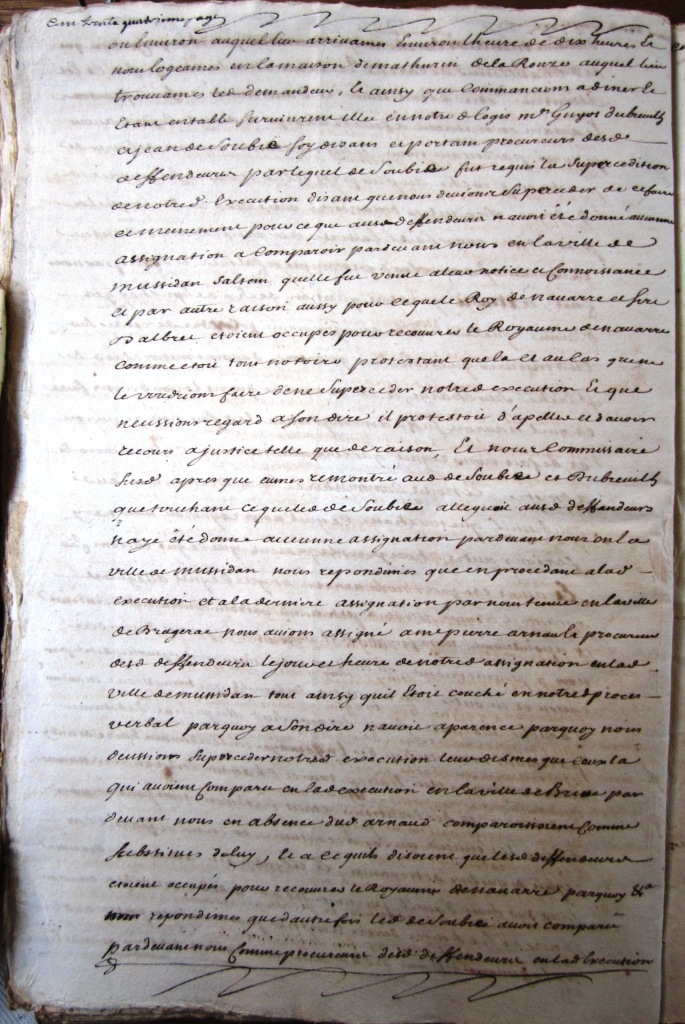 Cent trente quatrieme page
ou Environ auquel lieu arrivames Environ lheure de dix heures Et
nous logeames en la maison de mathurin de la Rouze auquel lieu
trouvames led demandeur, Et ainsy que Commancions a diner Et
Etans en table survinrent illec en notred logis me Guyot dubreuilh
et jean de Soubie soy disans et portans procureurs desd
deffendeurs par lequel de Soubie fut requis la Supercedition
de notred Execution disant que nous devions Superceder de ce faire
et mesmement pour ce que ausd deffendeurs n'avoit été donné aucunne
assignation a Comparoir pardevant nous en la ville de
mussidan saltem quelle fut venue a leur notice et Connoissance
et par autre raison aussy pour ce que le Roy de navarre et sire
D'albret etoient occupés pour recouvrer le Royaume de navarre
Comme etoit tout notoire protestant que la et au cas que ne
le voudrions faire de ne Superceder notred execution Et que
neussions regard a son dire il protestoit d'apeller et d'avoir
recours a justice telle que de raison, Et nous Commissaire
susd apres que eumes remontré aud de Soubie et Dubreuilh
que touchant ce que led de Soubie alleguoit ausd deffendeurs
n'aye été donné aucunne assignation pardevant nous en la
ville de mussidan nous repondimes que en procedant a lad
execution et a la derniere assignation par nous tenue en la ville
de Bragerac nous avions assigné a me pierre arnault procureur
desd deffendeurs le jour et heure de notred assignation en lad
ville de mussidan tout ainsy quil Etoit couché en notred proces
verbal parquoy a son dire n'avoit aparence parquoy nous
deussions Superceder notred execution leur dismes que ceux la
qui avoient Comparu en lad execution en la ville de Brive par
devant nous en absence dud arnaud comparoissoient Comme
substitues de luy, Et a ce quils disoient que lesd deffendeurs
etoient occupés pour recouvrer le Royaume de navarre parquoy &a
repondimes que dautre fois led de Soubie avoit comparu
pardevant nous Comme procureur desd deffendeurs en lad Execution